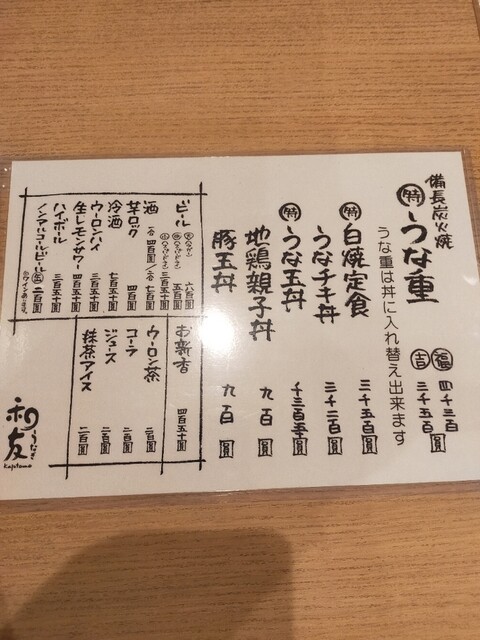 備長炭火焼
特 うな重
福 四千三百圓
吉 三千五百圓
うな重は丼に入れ替え出来ます
特 白焼定食 三千五百圓
うなチキ丼 三千二百圓
特 うな玉丼 千三百五十圓
地鶏親子丼 九百圓
豚玉丼 九百圓
ビール
六百圓
五百圓
酒
七百圓
芋ロック 四百圓
冷酒 七百五十圓
ウーロンハイ 三百五十圓
生レモンサワー 四百五十圓
ハイボール 三百五十圓
ノンアルコールビール 二百圓
お新香 四百五十圓
ウーロン茶 二百圓
コーラ 二百圓
ジュース 二百圓
抹茶アイス 二百圓
うなぎ
和友
Kazutomo